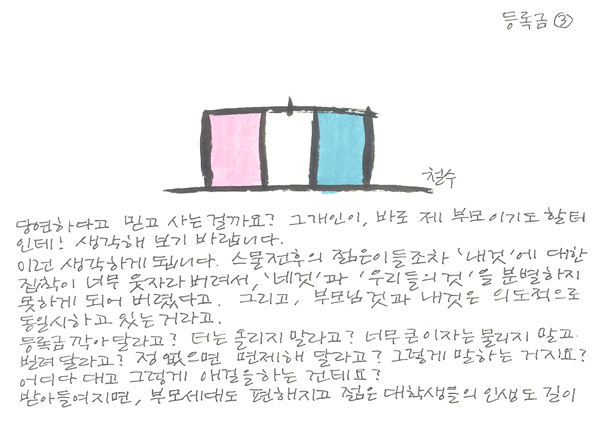 등록금 ③
철수
당연하다고 믿고 사는걸까요? 그개인이, 바로 제 부모이기도 할터
인데! 생각해 보기 바랍니다.
이런 생각하게 됩니다. 스물전후의 젊은이들조차 '내것'에 대한
집착이 너무 웃자라버려서, '네것'과 '우리들의것'을 분별하지
못하게 되어 버렸다고. 그리고, 부모님것과 내것은 의도적으로
동일시하고 있는거라고.
등록금 깍아달라고? 더는 올리지말라고? 너무 큰이자는물리지 말고
빌려달라고? 정 없으면 면제해 달라고? 그렇게 말하는 거지요?
어디다 대고 그렇게 애걸을하는 건데요?
받아들여지면, 부모세대도 편해지고 젊은 대학생들의 인생도 길이